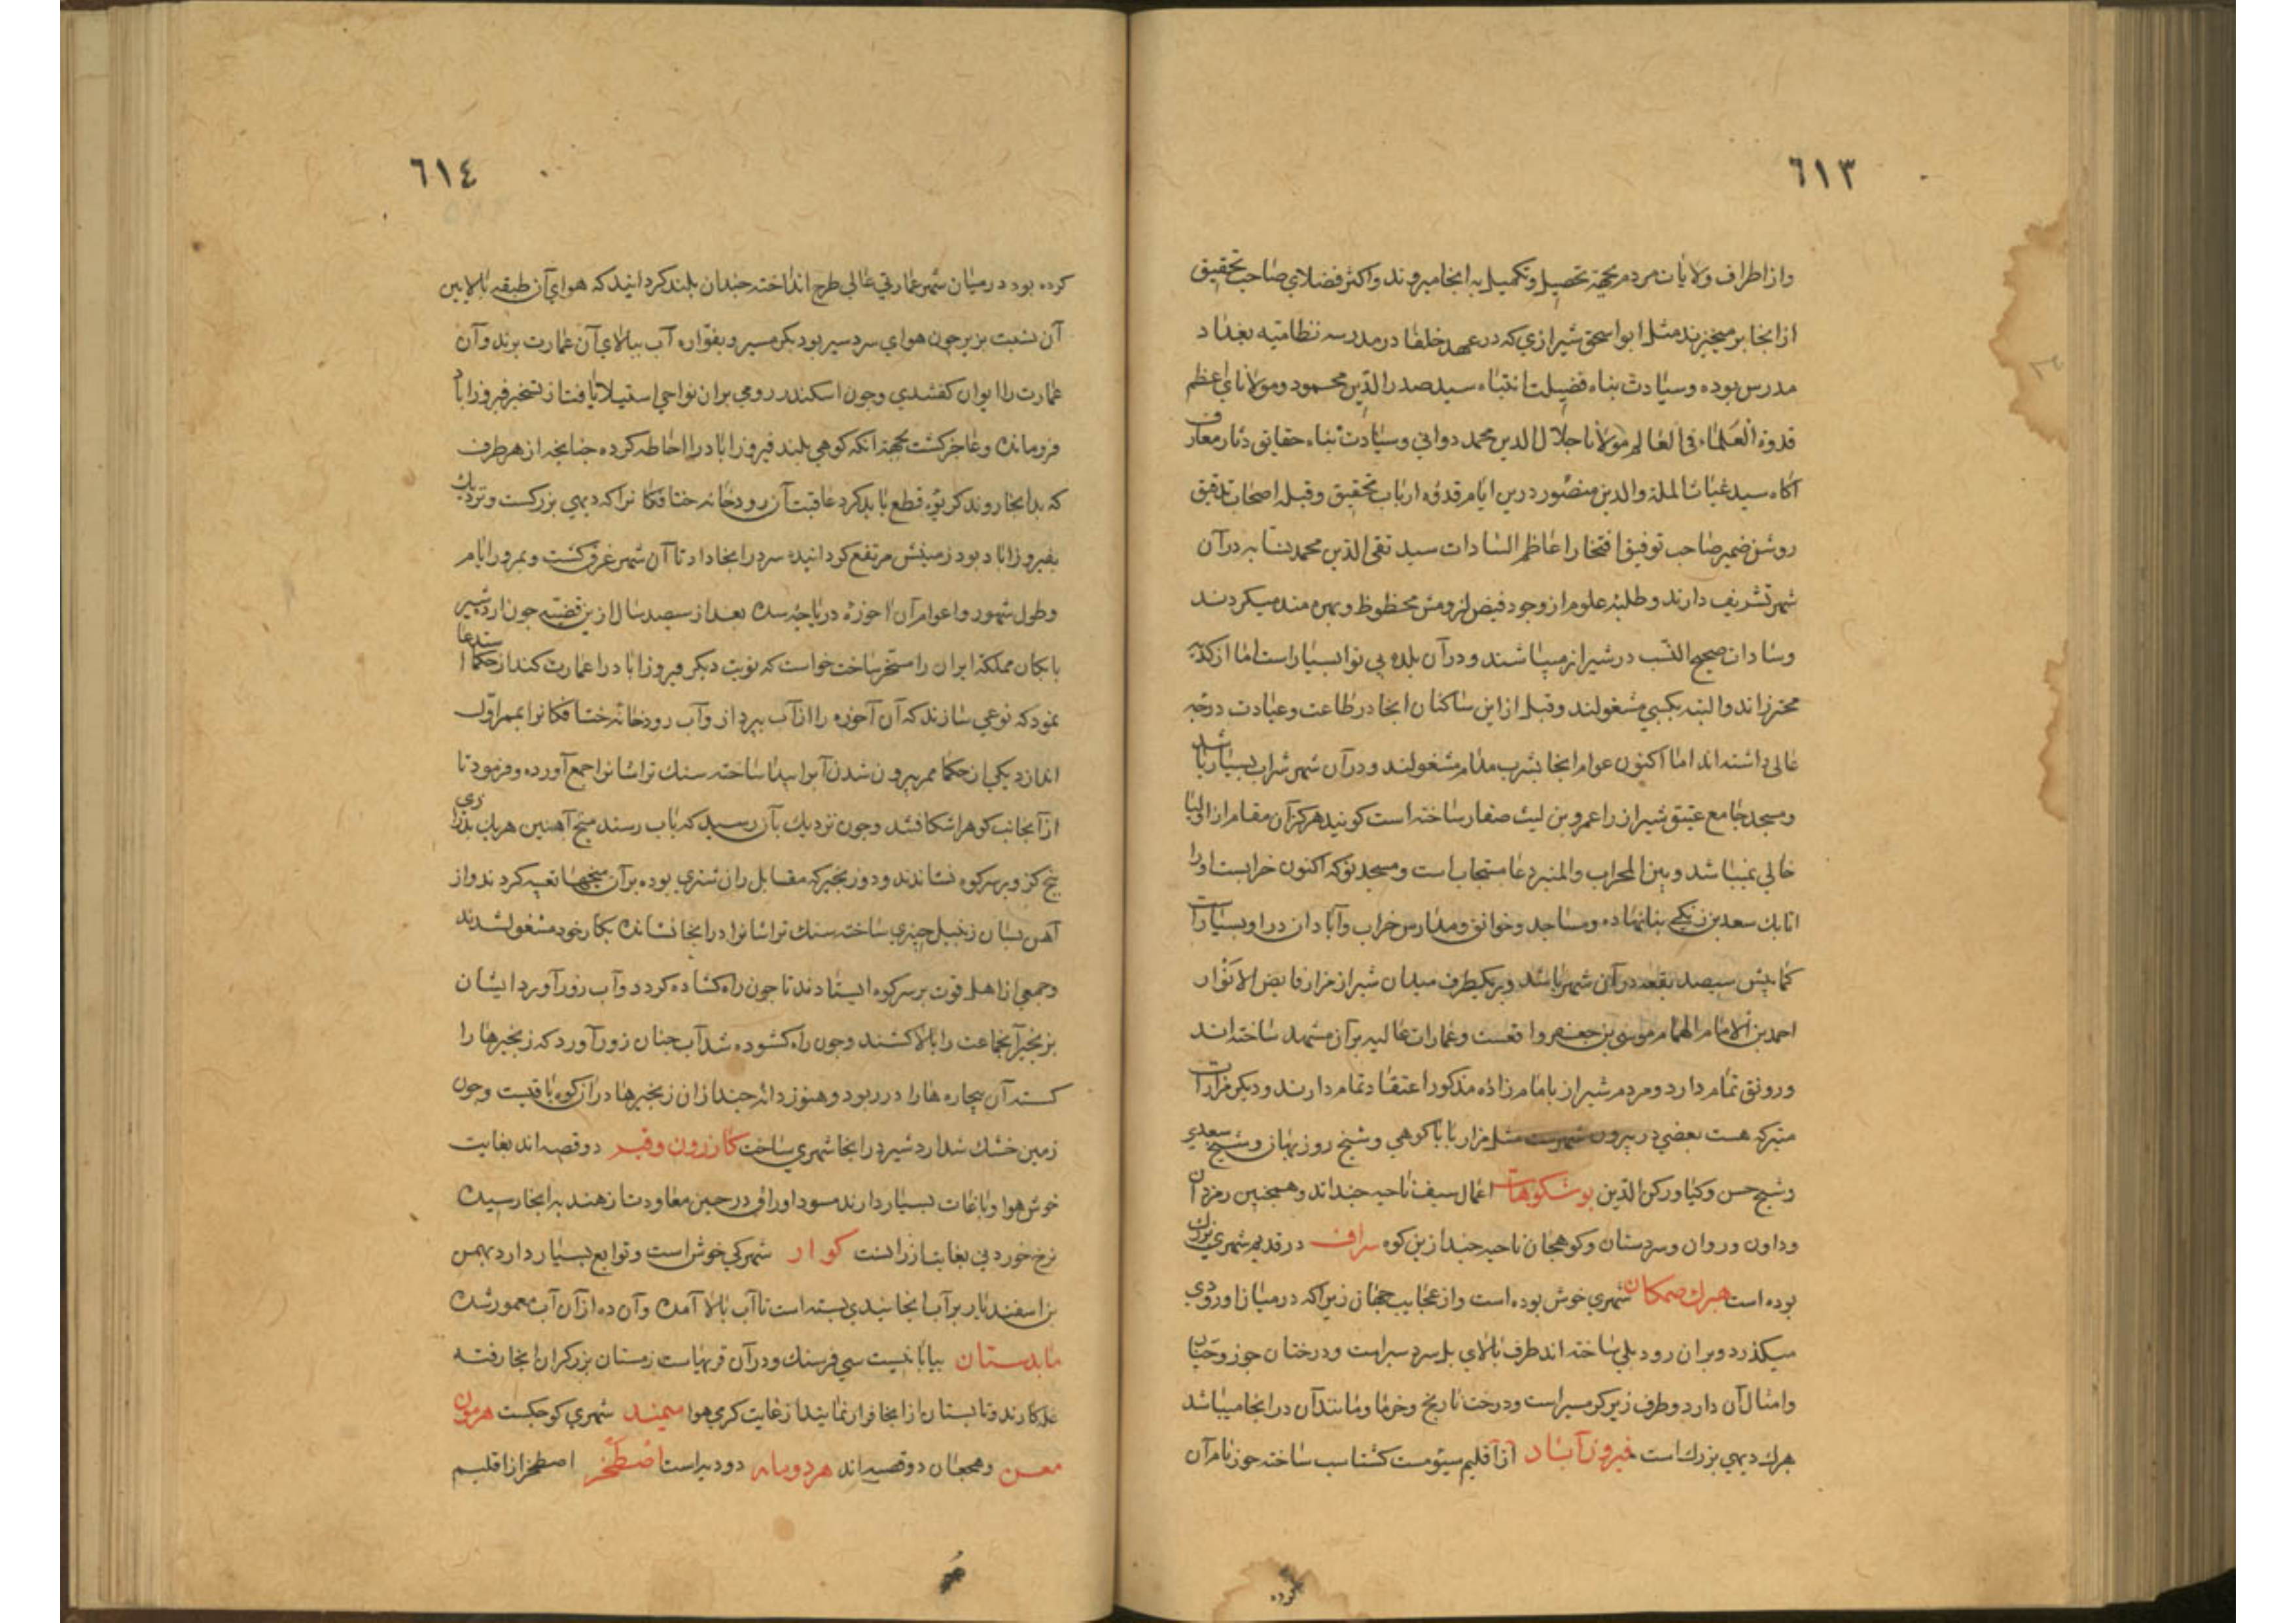 ٦١٣
واز اطراف ولايات مردم بجهة تحصيل وتكميل به انجا ميروند واكثر فضلاي صاحب تحقيق
از انجا برميخيزند مثل ابو اسحق شيرازي كه در عهد خلفا در مدرسه نظاميه بغداد
مدرس بوده وسيادت پناه فضيلت انتباه سيد صدر الدين محمود ومولاناي اعظم
قدوة العلماء في العالم مولانا جلال الدين محمد دواني وسيادت پناه حقايق دثار معارف
آكاه سيد غياث الملة والدين منصور درين ايام قدوه ارباب تحقيق وقبله اصحاب تدقيق
روشن ضمير صاحب توفيق افتخار اعاظم السادات سيد تقي الدين محمد نسابه در آن
شهر تشريف دارند وطلبه علوم از وجود فيض لزومش محظوظ وبهره مند ميكردند
وسادات صحيح النسب در شيراز ميباشند ودر آن بلده بي نوا بسيار است اما از كديه
محترزاند والبته بكسبي مشغولند وقبل از اين ساكنان انجا در طاعت وعبادت درجه
عالي داشته اند اما اكنون عوام انجا بشرب مدام مشغولند ودر آن شهر شراب بسيار باشد
ومسجد جامع عتيق شيراز را عمرو بن ليث صفار ساخته است كويند هركز آن مقام از اوليا
خالي نميباشد وبين المحراب والمنبر دعا مستجاب است ومسجد نو كه اكنون خرابست او را
اتابك سعد بن زنكي بنا نهاده ومساجد وخوانق ومدارس خراب وآبادان در او بسيار است
كمابيش سيصد بقعه در آن شهر باشد وبر يكطرف ميدان شيراز مزار فايض الانوار
احمد بن الامام الهمام موسى بن جعفر واقعست وعمارات عاليه بر آن مشهد ساخته اند
ورونق تمام دارد ومردم شيراز بامام زاده مذكور اعتقاد تمام دارند وديكر مزارات
متبركه هست بعضي در بيرون شهرست مثل مزار بابا كوهي وشيخ روزبهان وشيخ سعدي
وشيخ حسن وكيا وركن الدين بوشكوهات اعمال سيف ناحيه چنداند وهمچنين رمزدان
وداون وروان وسردستان وكوهجان ناحيه چند ازين كوه سراف در قديم شهري بزرك
بوده است هبرك صمكان شهري خوش بوده است واز عجايب جهان زيرا كه در ميان او رودي
ميكذرد وبر ان رود پلي ساخته اند طرف بالاي پل سردسير است ودرختان جوز وچنان
وامثال آن دارد وطرف زير كرمسير است ودرخت نارنج وخرما ومانند آن در انجا ميباشد
هبرك ديهي بزرك است فيروزآباد از اقليم سيومست كشتاسب ساخته جور نام آن
كرده
٦١٤
كرده بود در ميان شهر عمارتي عالي طرح انداخته چندان بلند كردانيد كه هواي آن طبقه بالا بين
آن نسبت بزير چون هواي سردسير بود بكرمسير وبفواره آب ببالاي آن عمارت برند وآن
عمارت را ايوان كفتندي وچون اسكندر رومي بران نواحي استيلا يافت از تسخير فيروزاباد
فرومانده وعاجز كشت بجهة انكه كوهي بلند فيروزاباد را احاطه كرده چنانچه از هر طرف
كه بدانجا روند كريوه قطع بايد كرد عاقبت آن رودخانه خنافكانرا كه ديهي بزركست ونزديك
بفيروزاباد بود زمينش مرتفع كردانيده سر در انجا داد تا آن شهر غرق كشت وبمرور ايام
وطول شهور واعوام آن احوزه درياچه شده بعد از سيصد سال ازين قضيه چون اردشير
بابكان مملكة ايران را مسخر ساخت خواست كه نوبت ديكر فيروزاباد را عمارت كند از حكما استدعا
نمود كه نوعي سازند كه آن آحوزه را از آب بپردازد وآب رودخانه خنافكانرا بممر اول
اندازد يكي از حكما ممر بيرون شدن آبرا پيدا ساخته سنك تراشانرا جمع آورده وفرمود تا
از آنجانب كوه را شكافتند وچون نزديك بآن رسيد كه باب رسند ميخ آهنين هر يك بذراع
پنج كز وبر سر كوه نشاندند ودو زنجير كه مقابل ران شتري بوده بر آن ميخها تعبيه كردند واز
آهن بسان زنبيل چيزي ساخته سنك تراشانرا در انجا نشانده بكار خود مشغول شدند
وجمعي از اهل قوت بر سر كوه ايستادند تا چون راه كشاده كردد وآب زور آورد ايشان
بزنجير آن جماعت را بالا كشند وچون راه كشوده شد آب چنان زور آورد كه زنجيرها را
كسسته آن بيچاره ها را در ربود وهنوز دانه چند از ان زنجيرها در آن كوه باقيست وچون
زمين خشك شد اردشير در انجا شهري ساخت كازرون وقير دو قصبه اند بغايت
خوش هوا وباغات بسيار دارند مسود اوراق در حين معاودت از هند به انجا رسيده
نرخ خوردني بغايت ارزانست كوار شهركي خوش است وتوابع بسيار دارد بهمن
بن اسفنديار بر آب انجا بندي بسته است تا آب بالا آمده وآن ده از آن آب معمور شده
مابدستان بيابانيست سي فرسنك ودر آن قريهاست زمستان برزكران انجا رفته
غله كارند وتابستان از انجا فرار نمايند از غايت كرمي هوا ميمند شهري كوچكست هرمون
معن وهمجان دو قصبه اند هردوساه دو ديه است اصطخر اصطخر از اقليم